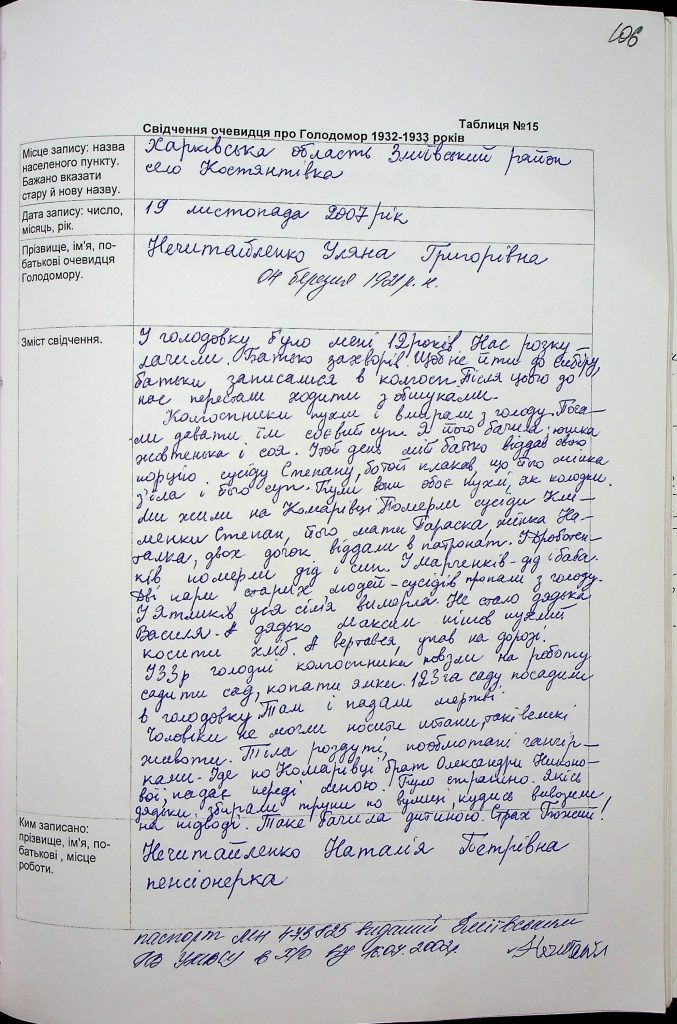 106
Таблиця №15
Свідчення очевидця про Голодомор 1932-1933 років
Місце запису: назва населеного пункту. Бажано вказати стару й нову назву.
Харківська область Зміївський район
село Костянтівка
Дата запису: число, місяць, рік.
19 листопада 2007 рік
Прізвище, ім'я, по-батькові очевидця Голодомору.
Нечитайленко Уляна Григорівна
04 березня 1921 р. н.
Зміст свідчення.
У голодовку було мені 12 років. Нас розку
лачили. Батько захворів. Щоб не йти до Сибіру,
батьки записалися в колгосп. Після цього до
нас перестали ходити з обшуками.
Колгоспники пухли і вмирали з голоду. Поча-
ли давати їм соєвий суп. Я його бачила: юшка
жовтенька і соя. У той день мій батько віддав свою
порцію сусіду Степану, бо той плакав, що його жінка
з'їла і його суп. Були вони обоє пухлі, як колодки.
Ми жили на Комарівці. Померли сусіди Клі-
менки Степан, його мати Параска, жінка На-
талка, двох дочок віддали в патронат. У
ків померли дід і син. У Марченків - дід і баба.
Дві пари старих людей - сусідів пропали з голоду.
У Ятликів уся сім'я вимерла. Не стало дядька
Василя. А дядько Максим пішов пухлий
косити хліб. А вертався, упав на дорозі.
У 33 р. голодні колгоспники повзли на роботу
садити сад, копати ямки. 123 га саду посадили
в голодовку. Там і падали мертві.
Чоловіки не могли носити штани, такі великі
животи. Тіла роздуті, пообмотані ганчір-
ками. Іде по Комарівці брат Олександри
вої, падає переді мною. Було страшно. Якісь
дядьки збирали трупи по вулиці, кудись вивозили
на підводі. Таке бачила дитиною. Страх Божий!
Ким записано: прізвище, ім'я, по-батькові , місце роботи.
Нечитайленко Наталія Петрівна
пенсіонерка
паспорт МН 473125 виданий Зміївським
РВ УМВСУ в Х/О від 2003р.